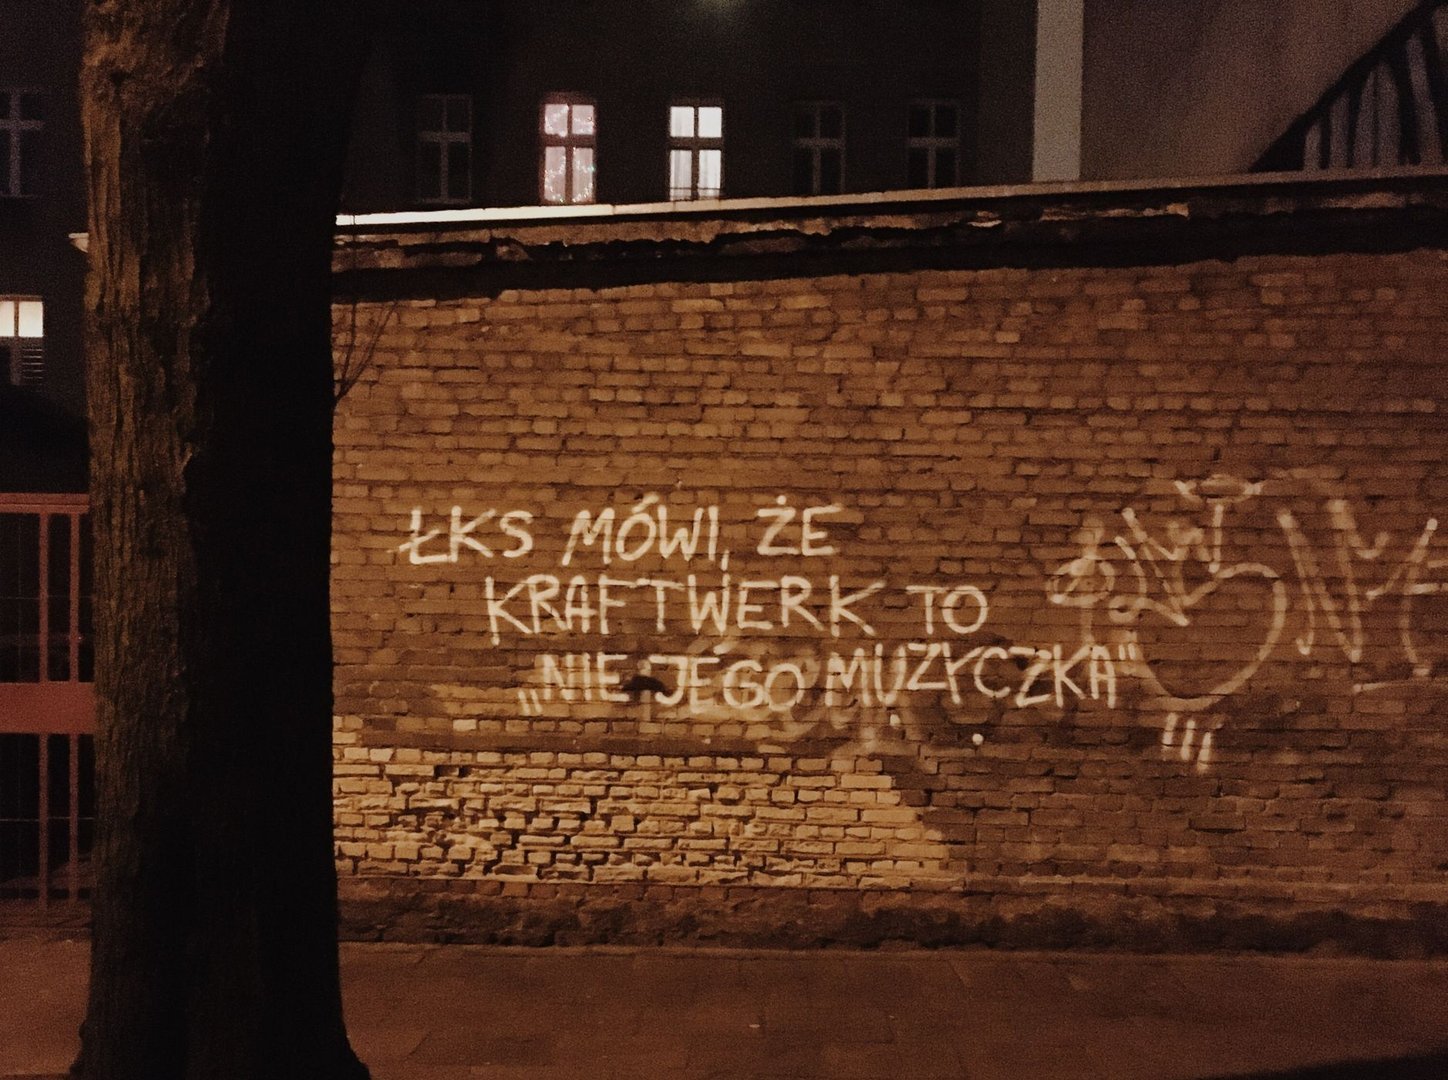 ŁKS MÓWI, ŻE
KRAFTWERK TO
„NIE JEGO MUZYCZKA"